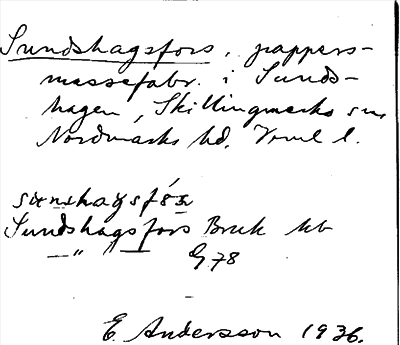 Sundshagsfors, pappers-
massefabr. i Sunds-
hagen, Skillingmarks sn
Nordmarks hd. Vrml l.
Sundshagsfors Bruk
—"— G 78
E. Andersson 1936.